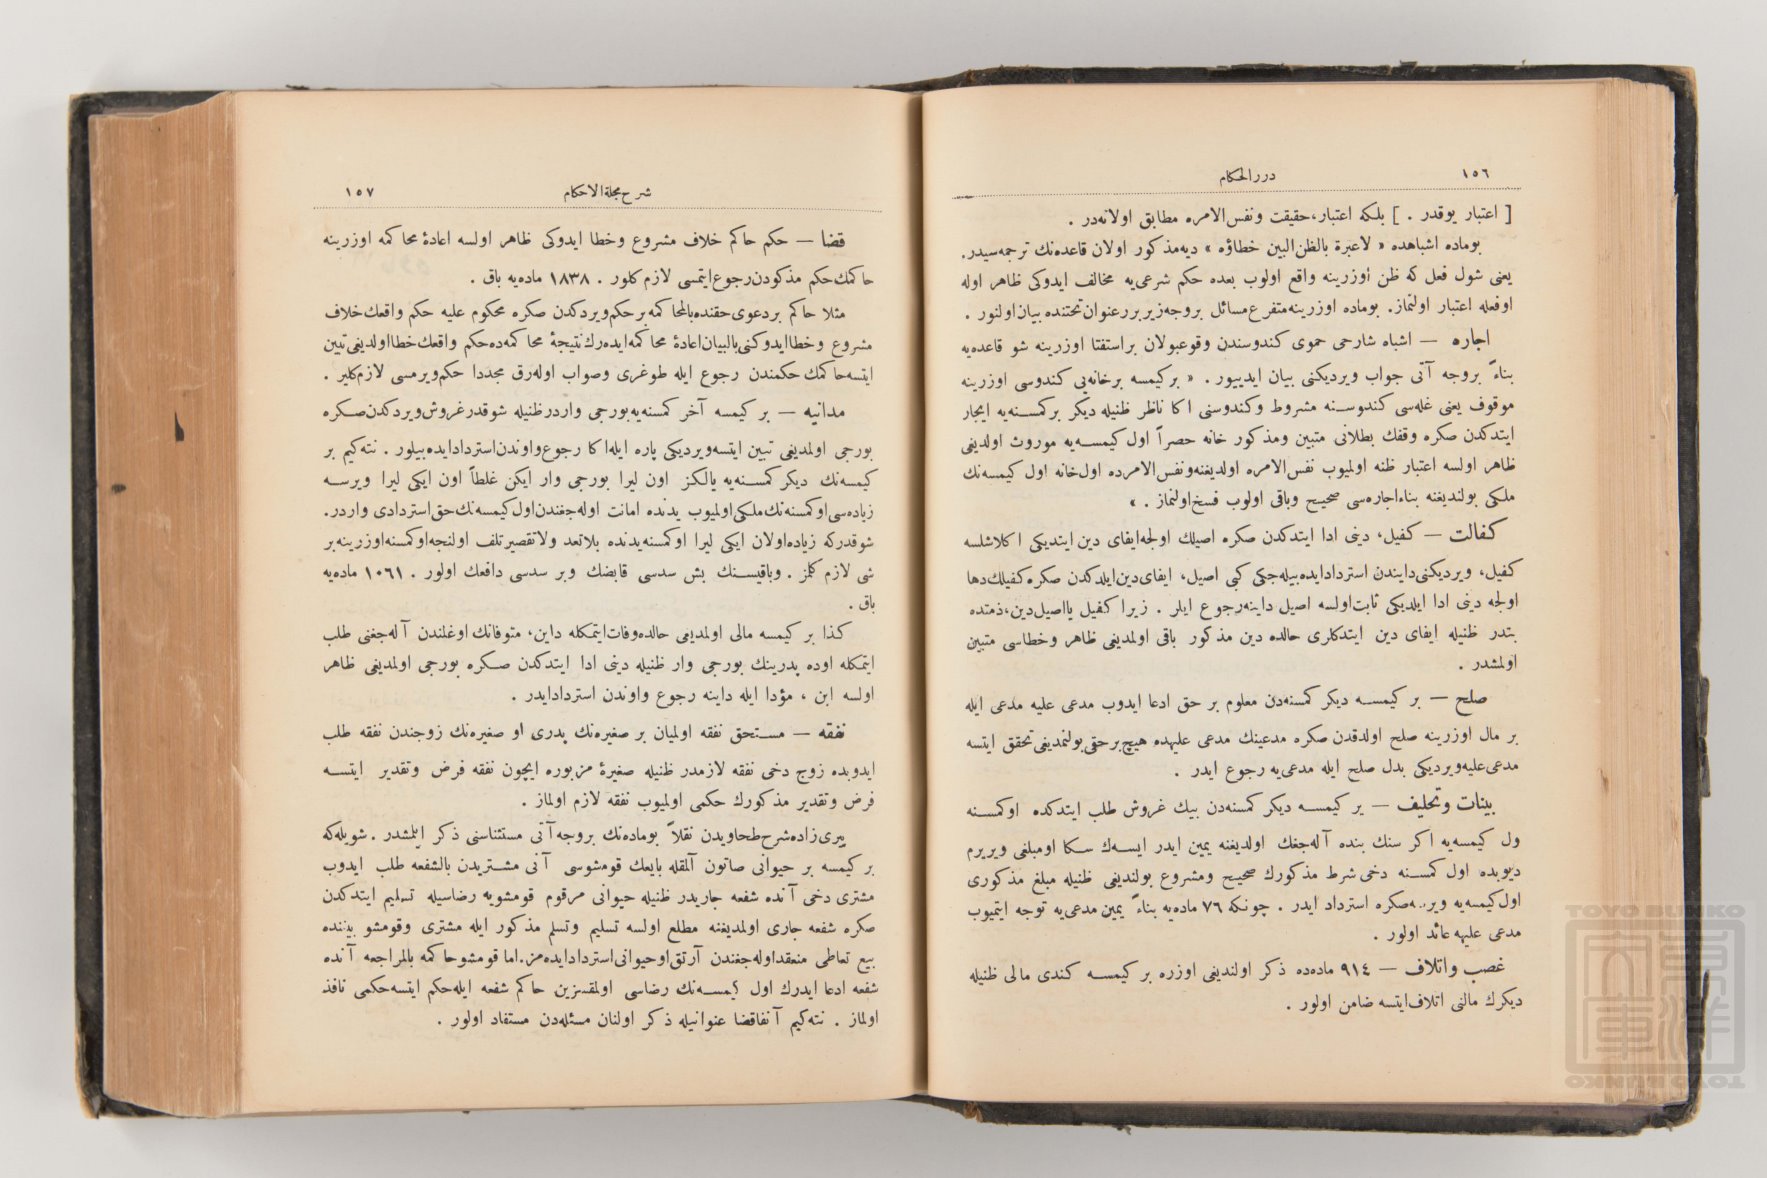 ١٥٦
درر الحكام
[ اعتبار يوقدر . ] بلكه اعتبار، حقيقت ونفس‌الامره مطابق اولانه‌در .
بوماده اشباهده « لاعبرة بالظن البين خطاؤه » ديه مذكور اولان قاعده‌نك ترجمه‌سيدر.
يعنى شول فعل كه ظن اوزرينه واقع اولوب بعده حكم شرعى‌يه مخالف ايدوكى ظاهر اوله
اوفعله اعتبار اولنماز. بوماده اوزرينه متفرع مسائل بروجه زير برر عنوان تحتنده بيان اولنور .
اجاره — اشباه شارحى حموى كندوسندن وقوعبولان براستفتا اوزرينه شو قاعده‌يه
بناءً بروجه آتى جواب ويرديكنى بيان ايدييور . « بركيمسه برخانه‌يى كندوسى اوزرينه
موقوف يعنى غله‌سى كندوسنه مشروط وكندوسنى اكا ناظر ظنيله ديكر بركمسنه‌يه ايجار
ايتدكدن صكره وقفك بطلانى متبين ومذكور خانه حصراً اول كيمسه‌يه موروث اولديغى
ظاهر اولسه اعتبار ظنه اولميوب نفس‌الامره اولديغنه ونفس‌الامرده اول خانه اول كيمسه‌نك
ملكى بولنديغنه بناء اجاره‌سى صحيح وباقى اولوب فسخ اولنماز . »
كفالت — كفيل، دينى ادا ايتدكدن صكره اصيلك اولجه ايفاى دين ايتديكى اكلاشلسه
كفيل، ويرديكنى دايندن استرداد ايده‌بيله‌جكى كبى اصيل، ايفاى دين ايلدكدن صكره كفيلك دها
اولجه دينى ادا ايلديكى ثابت اولسه اصيل داينه رجوع ايلر . زيرا كفيل يا اصيل دين، ذمتده
بتدر ظنيله ايفاى دين ايتدكلرى حالده دين مذكور باقى اولمديغى ظاهر وخطاسى متبين
اولمشدر .
صلح — بر كيمسه ديكر كمسنه‌دن معلوم بر حق ادعا ايدوب مدعى عليه مدعى ايله
بر مال اوزرينه صلح اولدقدن صكره مدعينك مدعى عليهده هيچ برحقى بولنمديغى تحقق ايتسه
مدعى عليه ويرديكى بدل صلح ايله مدعى‌يه رجوع ايدر .
بينات وتحليف — بر كيمسه ديكر كمسنه‌دن بيك غروش طلب ايتدكده اوكمسنه
ول كيمسه‌يه اكر سنك بنده آله‌جغك اولديغنه يمين ايدر ايسه‌ك سكا اومبلغى ويريرم
ديوبده اول كمسنه دخى شرط مذكورك صحيح ومشروع بولنديغى ظنيله مبلغ مذكورى
اول كيمسه‌يه صكره استرداد ايدر . چونكه ٧٦ ماده‌يه بناءً يمين مدعى‌يه توجه ايتميوب
مدعى عليهه عائد اولور .
غصب واتلاف — ٩١٤ ماده‌ده ذكر اولنديغى اوزره بر كيمسه كندى مالى ظنيله
ديكرك مالنى اتلاف ايتسه ضامن اولور .
شرح مجلة الاحكام
١٥٧
قضا — حكم حاكم خلاف مشروع وخطا ايدوكى ظاهر اولسه اعادهٔ محاكمه اوزرينه
حاكمك حكم مذكودن رجوع ايتمسى لازم كلور . ١٨٣٨ ماده‌يه باق .
مثلا حاكم بردعوى حقنده بالمحاكمه برحكم ويردكدن صكره محكوم عليه حكم واقعك خلاف
مشروع وخطا ايدوكنى بالبيان اعادهٔ محاكمه ايده‌رك نتيجهٔ محاكمه‌ده حكم واقعك خطا اولديغى تبين
ايتسه حاكمك حكمندن رجوع ايله طوغرى وصواب اوله‌رق مجددا حكم ويرمسى لازم كلير .
مدانيه — بر كيمسه آخر كمسنه‌يه بورجى واردر ظنيله شوقدر غروش ويردكدن صكره
بورجى اولمديغى تبين ايتسه ويرديكى پاره ايله اكا رجوع واوندن استرداد ايده‌بيلور . نته‌كيم بر
كيمسه‌نك ديكر كمسنه‌يه يالكز اون ليرا بورجى وار ايكن غلطاً اون ايكى ليرا ويرسه
زياده‌سى اوكمسنه‌نك ملكى اولميوب يدنده امانت اوله‌جغندن اول كيمسه‌نك حق استردادى واردر.
شوقدركه زياده اولان ايكى ليرا اوكمسنه يدنده بلاتعد ولاتقصير تلف اولنجه اوكمسنه اوزرينه بر
شى لازم كلمز . وباقيسنك بش سدسى قابضك وبر سدسى دافعك اولور . ١٠٦١ ماده‌يه
باق .
كذا بر كيمسه مالى اولمديغى حالده وفات ايتمكله داين، متوفانك اوغلندن آله‌جغنى طلب
ايتمكله اوده پدرينك بورجى وار ظنيله دينى ادا ايتدكدن صكره بورجى اولمديغى ظاهر
اولسه ابن ، مؤدا ايله داينه رجوع واوندن استرداد ايدر .
نفقه — مستحق نفقه اولميان بر صغيره‌نك پدرى او صغيره‌نك زوجندن نفقه طلب
ايدوبده زوج دخى نفقه لازمدر ظنيله صغيرهٔ مزبوره ايچون نفقه فرض وتقدير ايتسه
فرض وتقدير مذكورك حكمى اولميوب نفقه لازم اولماز .
پيرى زاده شرح طحاويدن نقلاً بوماده‌نك بروجه آتى مستثناسنى ذكر ايلمشدر . شويله‌كه
بر كيمسه بر حيوانى صاتون آلمقله بايعك قومشوسى آنى مشتريدن بالشفعه طلب ايدوب
مشترى دخى آنده شفعه جاريدر ظنيله حيوانى مرقوم قومشويه رضاسيله تسليم ايتدكدن
صكره شفعه جارى اولمديغنه مطلع اولسه تسليم وتسلم مذكور ايله مشترى وقومشو بيننده
بيع تعاطى منعقد اوله‌جغندن آرتق او حيوانى استرداد ايده‌مز. اما قومشو حاكمه بالمراجعه آنده
شفعه ادعا ايدرك اول كيمسه‌نك رضاسى اولمقسزين حاكم شفعه ايله حكم ايتسه حكمى نافذ
اولماز . نته‌كيم آنفا قضا عنوانيله ذكر اولنان مسئله‌دن مستفاد اولور .
TOYO BUNKO